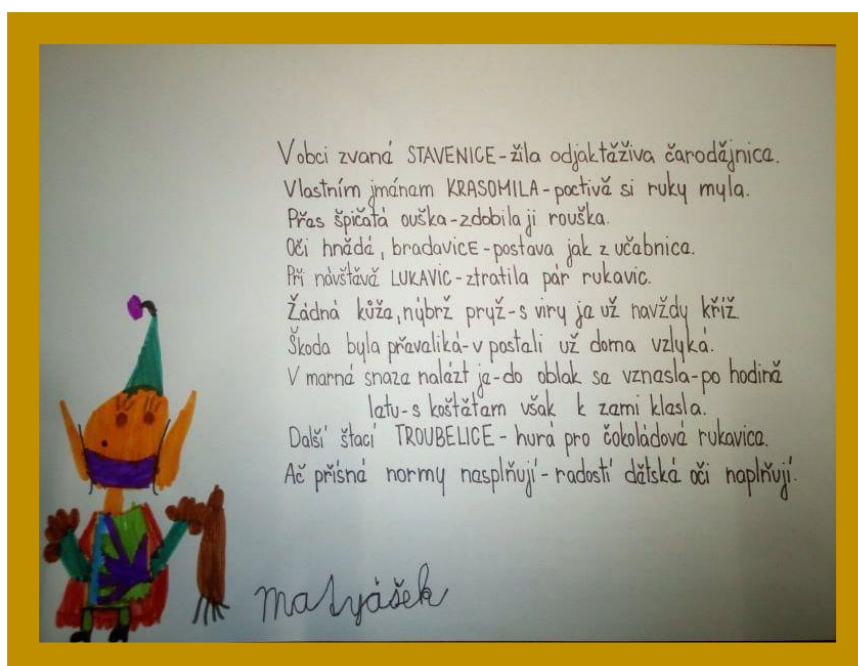 V obci zvané STAVENICE - žila odjaktěživa čarodějnice.
Vlastním jménem KRASOMILA - poctivě si ruky myla.
Přes špičatá ouška - zdobila ji rouška.
Oči hnědé, bradavice - postava jak z učebnice.
Při návštěvě LUKAVIC - ztratila pár rukavic.
Žádná kůže, nýbrž pryž - s viry je už navždy kříž
Škoda byla převeliká - v posteli už doma vzlyká.
V marné snaze nalézt je - do oblak se vznesla - po hodině
letu - s koštětem však k zemi klesla.
Další štací TROUBELICE - hurá pro čokoládové rukavice.
Ač přísné normy nesplňují - radostí dětské oči naplňují.
Matyášek